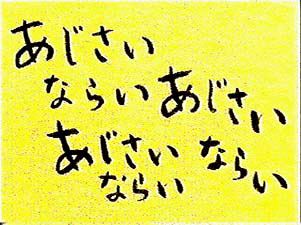 あじさい
ならい
あじさい
ならい
あじさい
ならい